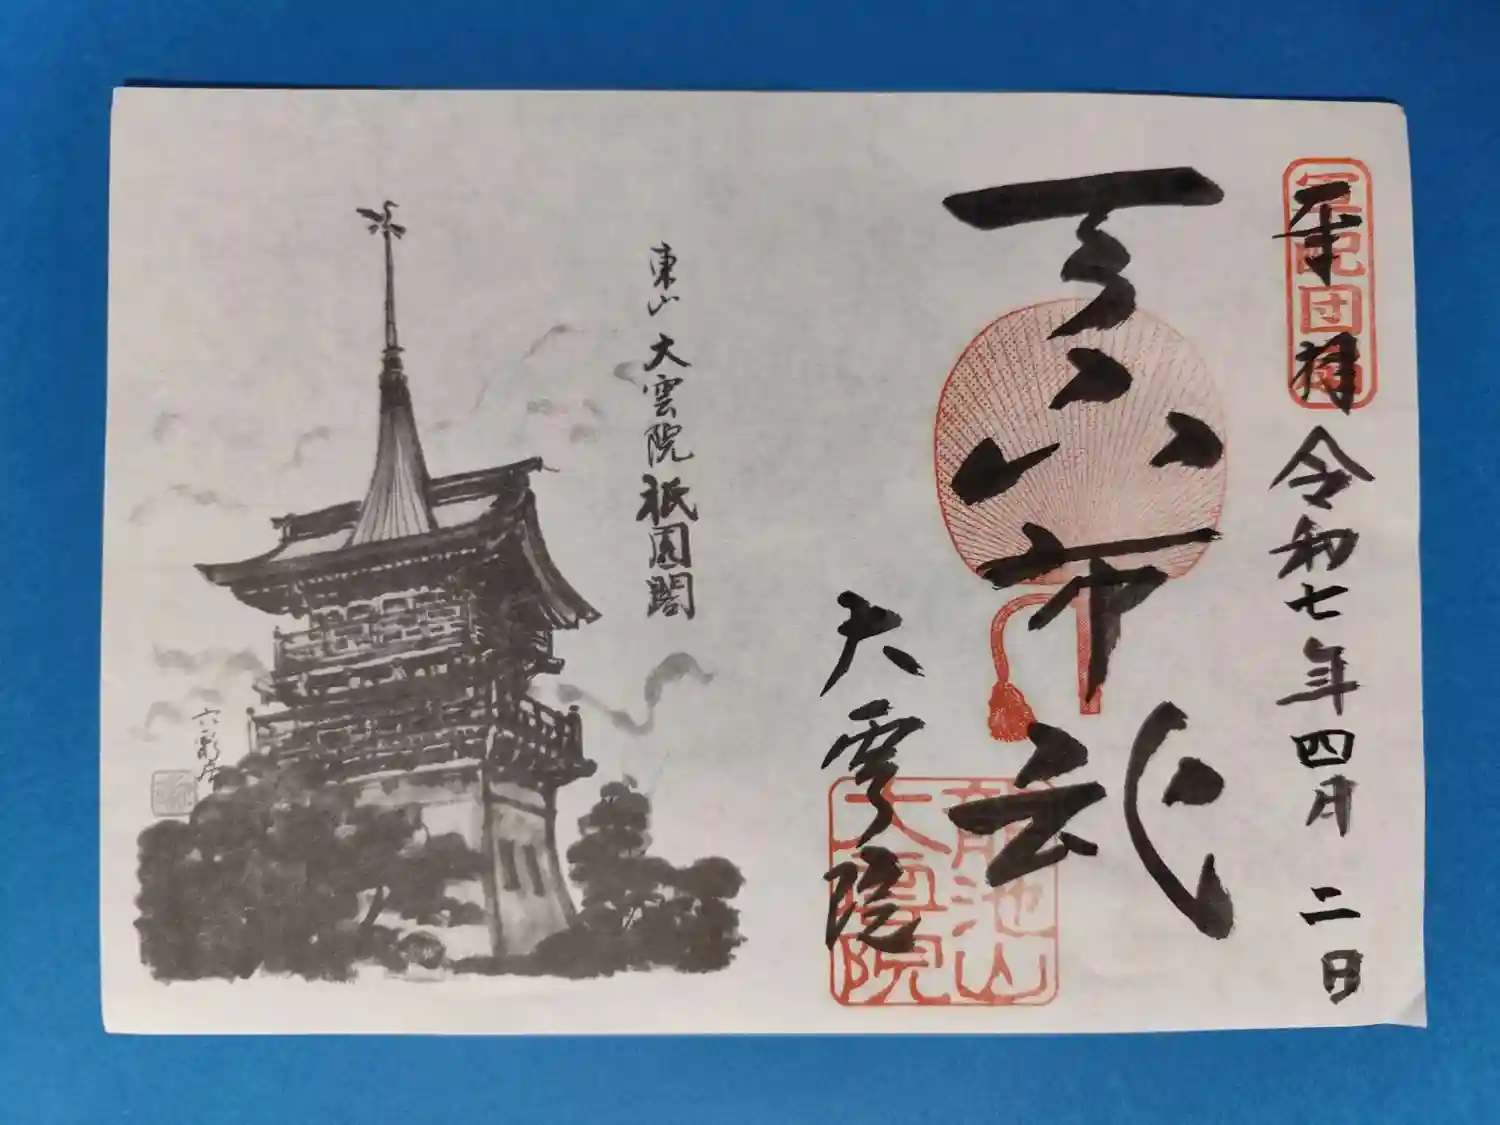 奉拝 令和七年四月二日
軍配団扇
天下布武
大雲院
龍池山
大雲院
東山 大雲院 祇園閣